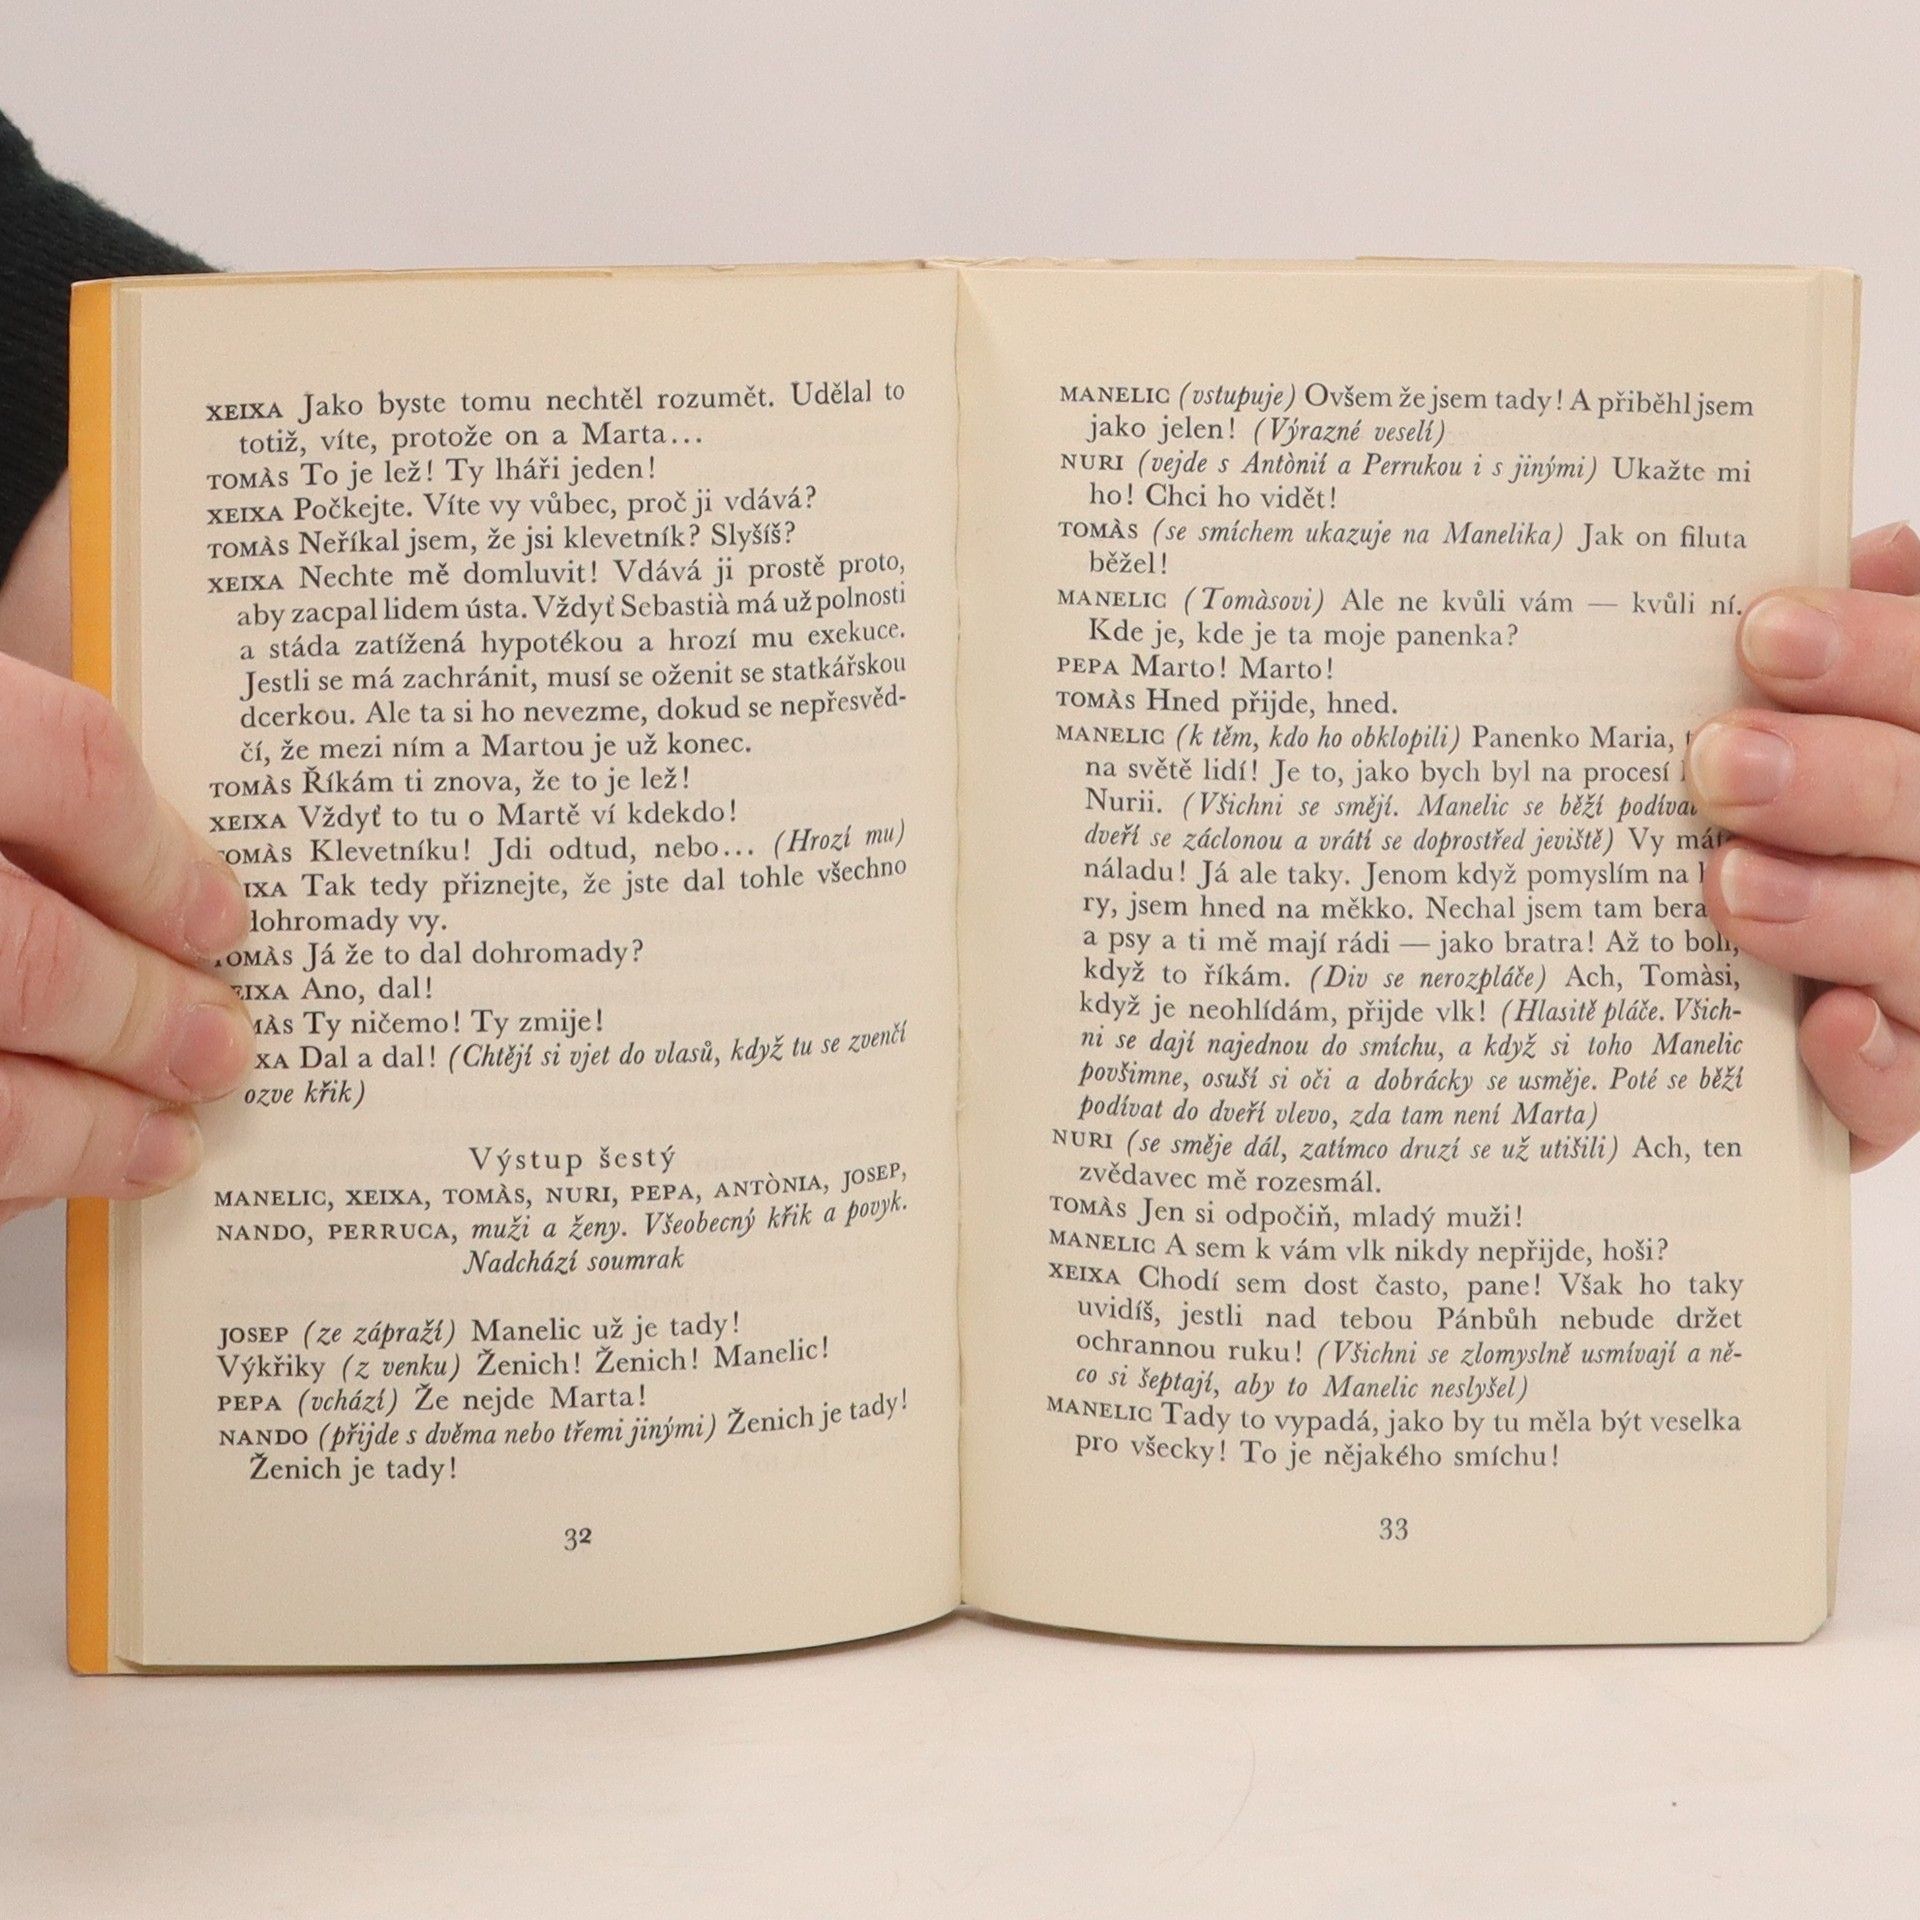 XEIXA Jako byste tomu nechtěl rozumět. Udělal to
totiž, víte, protože on a Marta...
TOMÀS To je lež! Ty lháři jeden!
XEIXA Počkejte. Víte vy vůbec, proč ji vdává?
TOMÀS Neříkal jsem, že jsi klevetník? Slyšíš?
XEIXA Nechte mě domluvit! Vdává ji prostě proto,
aby zacpal lidem ústa. Vždyť Sebastià má už polnosti
a stáda zatížená hypotékou a hrozí mu exekuce.
Jestli se má zachránit, musí se oženit se statkářskou
dcerkou. Ale ta si ho nevezme, dokud se nepřesvěd-
čí, že mezi ním a Martou je už konec.
TOMÀS Říkám ti znova, že to je lež!
XEIXA Vždyť to tu o Martě ví kdekdo!
TOMÀS Klevetníku! Jdi odtud, nebo... (Hrozí mu)
Tak tedy přiznejte, že jste dal tohle všechno
dohromady vy.
TOMÀS Já že to dal dohromady?
XEIXA Ano, dal!
Ty ničemo! Ty zmije!
Dal a dal! (Chtějí si vjet do vlasů, když tu se zvenčí
ozve křik)
Výstup šestý
MANELIC, XEIXA, TOMÀS, NURI, PEPA, ANTÒNIA, JOSEP,
NANDO, PERRUCA, muži a ženy. Všeobecný křik a povyk.
Nadchází soumrak
JOSEP (ze zápraží) Manelic už je tady!
Výkřiky (z venku) Ženich! Ženich! Manelic!
PEPA (vchází) Že nejde Marta!
NANDO (přijde s dvěma nebo třemi jinými) Ženich je tady!
Ženich je tady!
32
MANELIC (vstupuje) Ovšem že jsem tady! A přiběhl jsem
jako jelen! (Výrazné veselí)
NURI (vejde s Antònií a Perrukou i s jinými) Ukažte mi
ho! Chci ho vidět!
TOMÀS (se smíchem ukazuje na Manelika) Jak on filuta
běžel!
MANELIC (Tomàsovi) Ale ne kvůli vám — kvůli ní.
Kde je, kde je ta moje panenka?
PEPA Marto! Marto!
TOMÀS Hned přijde, hned.
MANELIC (k těm, kdo ho obklopili) Panenko Maria,
na světě lidí! Je to, jako bych byl na procesí
Nurii. (Všichni se smějí. Manelic se běží podívat
dveří se záclonou a vrátí se doprostřed jeviště) Vy máte
náladu! Já ale taky. Jenom když pomyslím na
ry, jsem hned na měkko. Nechal jsem tam
a psy a ti mě mají rádi — jako bratra! Až to bolí,
když to říkám. (Div se nerozpláče) Ach, Tomàsi,
když je neohlídám, přijde vlk! (Hlasitě pláče. Všich-
ni se dají najednou do smíchu, a když si toho Manelic
povšimne, osuší si oči a dobrácky se usměje. Poté se běží
podívat do dveří vlevo, zda tam není Marta)
NURI (se směje dál, zatímco druzí se už utišili) Ach, ten
zvědavec mě rozesmál.
TOMÀS Jen si odpočiň, mladý muži!
MANELIC A sem k vám vlk nikdy nepřijde, hoši?
XEIXA Chodí sem dost často, pane! Však ho taky
uvidíš, jestli nad tebou Pánbůh nebude držet
ochrannou ruku! (Všichni se zlomyslně usmívají a ně-
co si šeptají, aby to Manelic neslyšel)
MANELIC Tady to vypadá, jako by tu měla být veselka
pro všecky! To je nějakého smíchu!
33